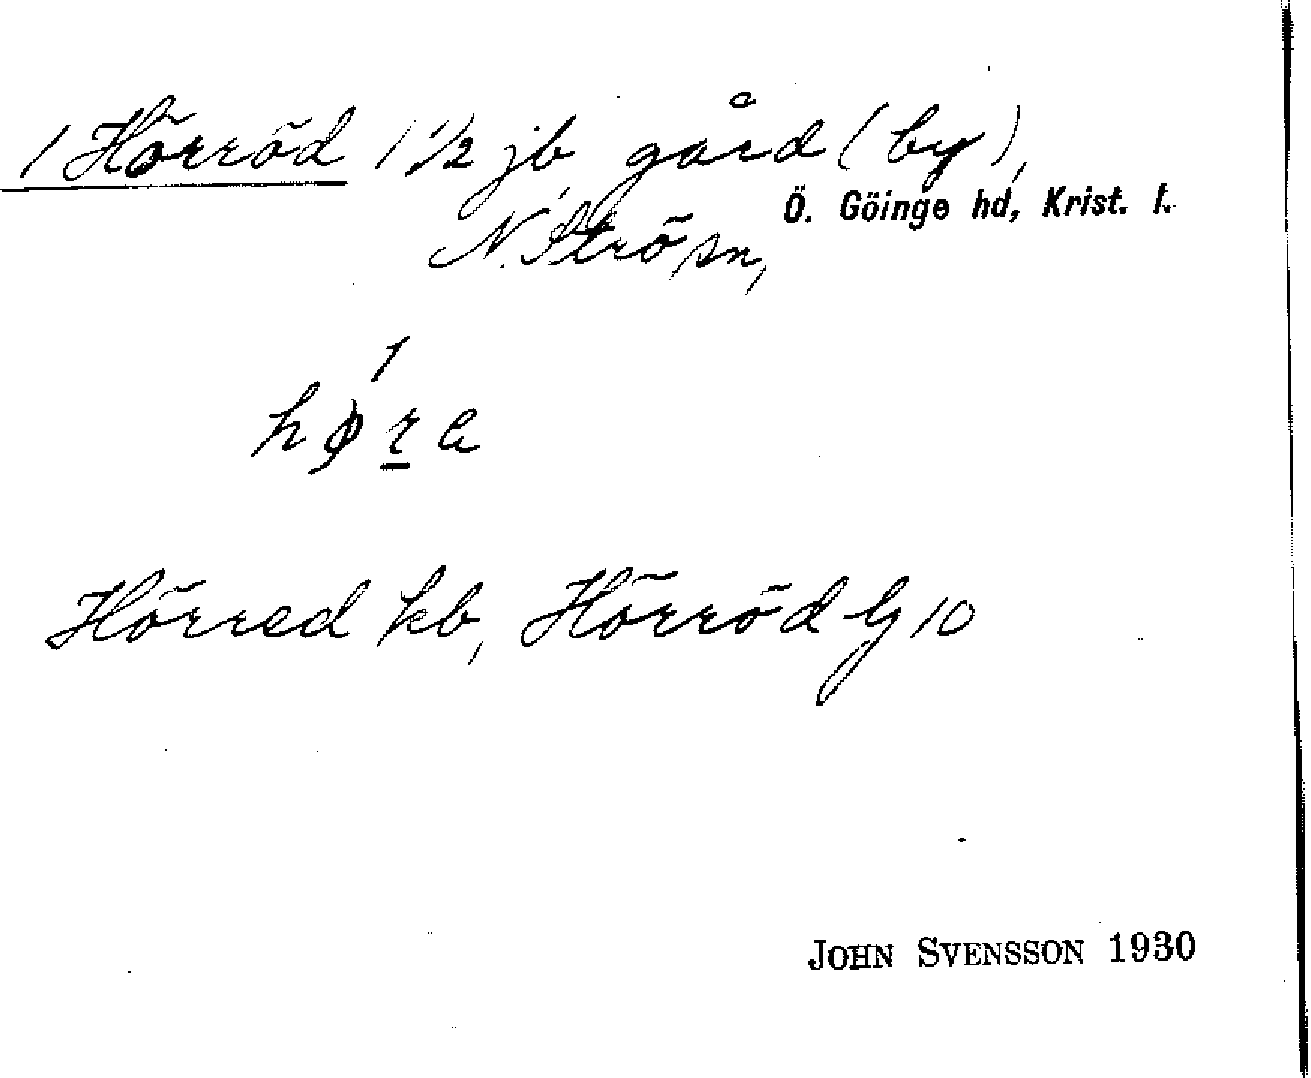 1 Hörröd 1 1/2 jb gård (by),
N. Strö sn, Ö. Göinge hd, Krist. l.
1
høra
Hörred kb, Hörröd Gg 10
JOHN SVENSSON 1930